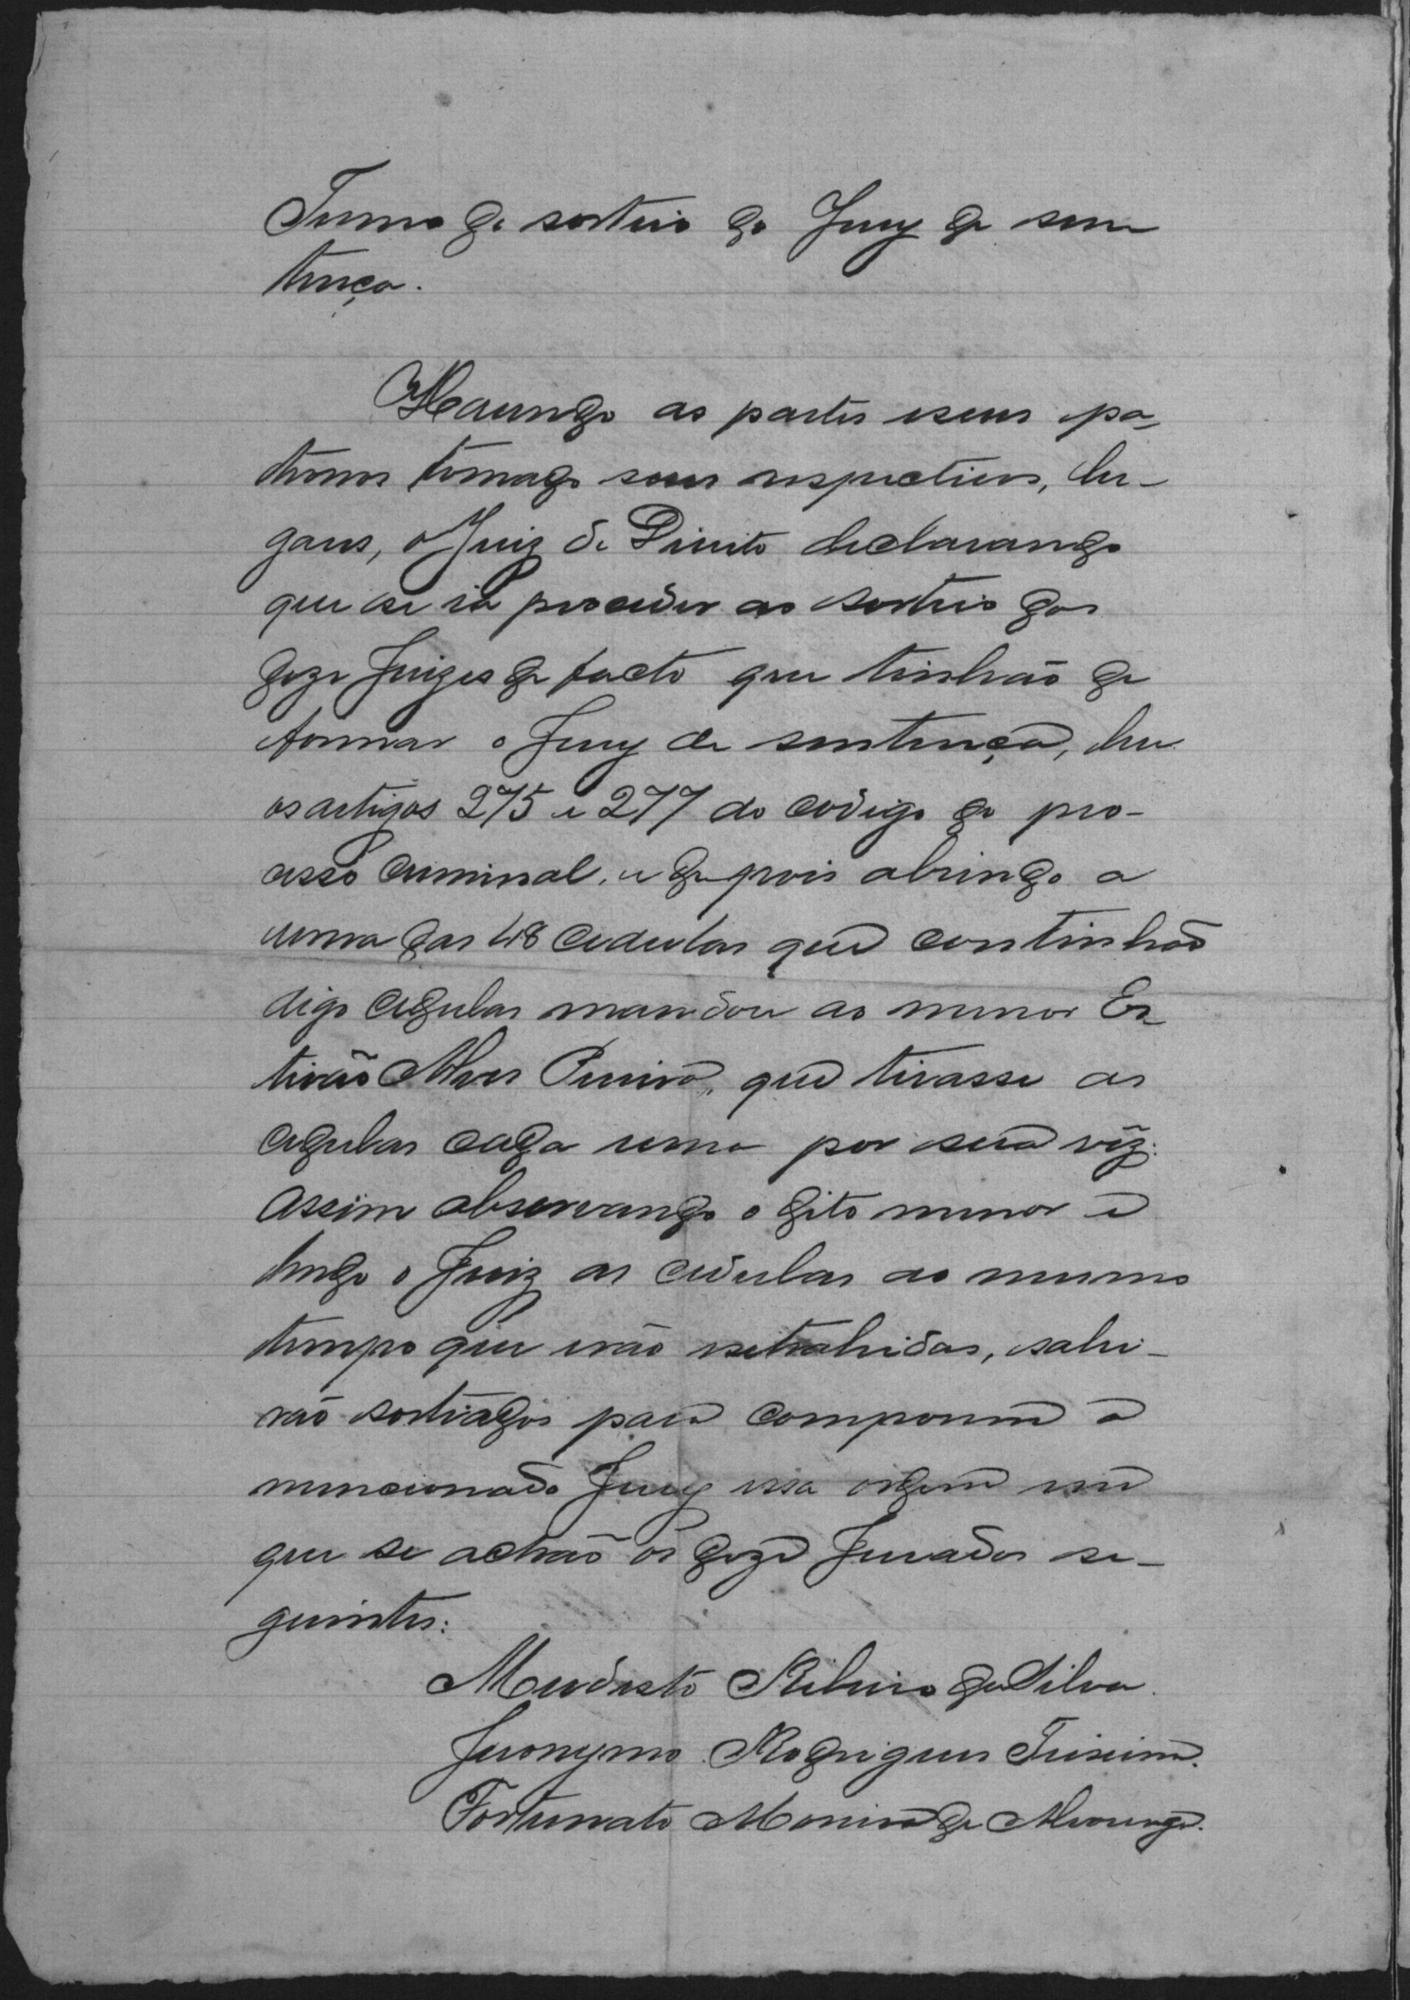 Termo de sorteio do Jury de sen
tença.
Havendo as partes e seus pa-
tronos tomado seus respectivos, lu-
gares, o Juiz de Direito declarando
que se ia proceder ao sorteio dos
doze Juizes de facto que tinhão de
formar o Jury de sentença, leu
os artigos 275 e 277 do codigo do pro-
cesso criminal, e depois abrindo a
urna das 48 cedulas que continhão
digo cedulas mandou ao menor Es-
tevão Alves Pereira, que tirasse as
cedulas cada uma por sua vez.
Assim observando o dito menor e
lendo o Juiz as cedulas ao mesmo
tempo que erão extrahidas, sahi-
rão sorteados para comporem o
mencionado Jury essa ordem em
que se achão os doze Jurados se-
guintes:
Modesto Ribeiro da Silva.
Jeronymo Rodrigues Teixeira.
Fortunato Moreira de Alvarenga.